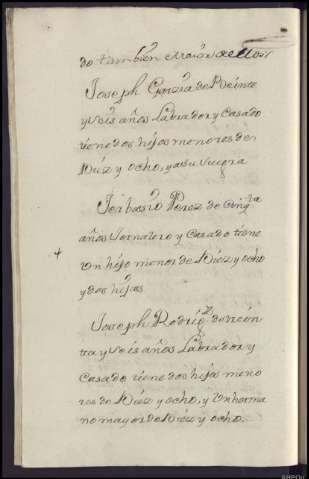 do tambien varon de ellos
Joseph Garzia de Veinte
y Seis años Labrador y Casado
tiene dos hijos menores de
Diez y ocho, y a su suegra
Serbasio Perez de Cinqta
años Jornalero y Casado tiene
Un hijo menor de Diez y ocho
y dos hijas
Joseph Rodrigz de trein
ta y Seis años Labrador y
Casado tiene dos hijas meno
res de Diez y ocho, y Un herma
no mayor de Diez y ocho.